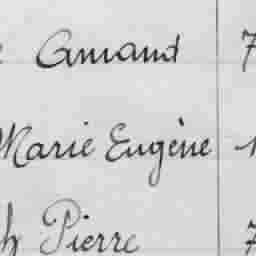 Amand 7
Marie Eugène 1
h Pierre 7